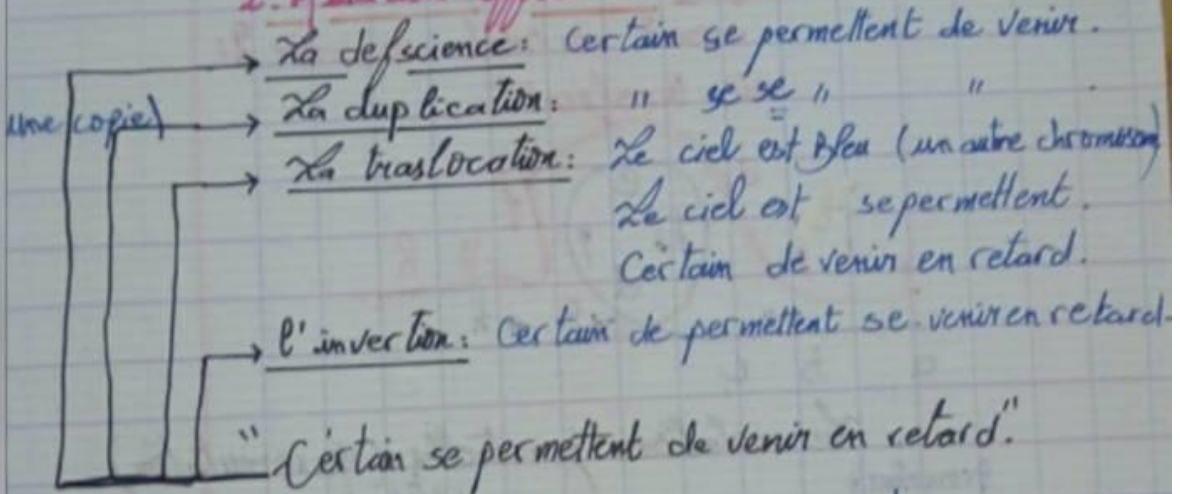 La defscience: Certain se permettent de venir.
La duplication: " se se " " .
une copie)
La traslocation: Le ciel est Bleu (un autre chromosom)
Le ciel est se permettent.
Certain de venir en retard.
l'invertion: Certain de permettent se venir en retard.
"Certain se permettent de venir en retard."